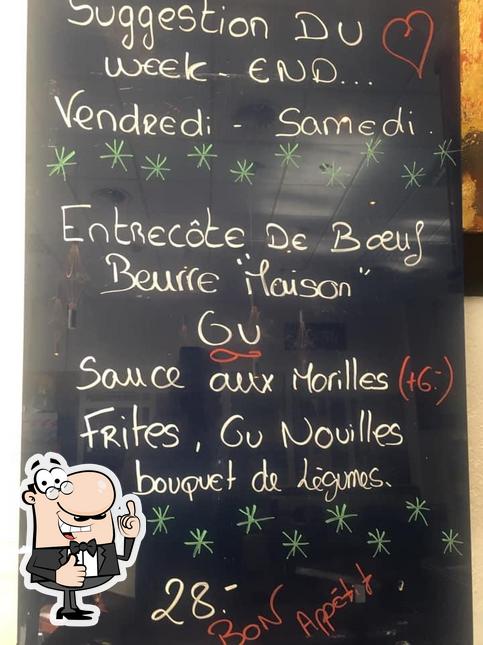 Suggestion DU
WEEK-END...
Vendredi - Samedi.
Entrecôte De Bœuf
Beurre "Maison"
OU
Sauce aux Morilles (+6.-)
Frites, Ou Nouilles
bouquet de Légumes.
28.-
BON Appétit